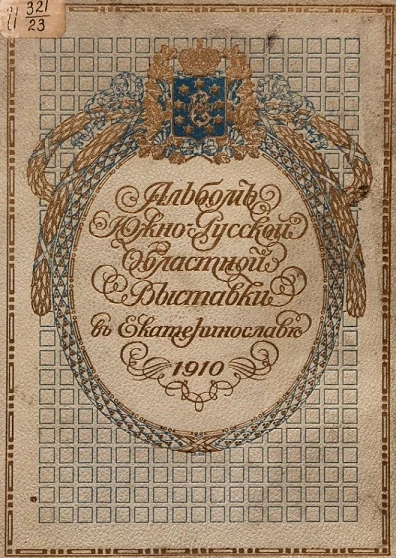 И 321
23
Альбомъ
Южно-Русской
Областной
Выставки
въ Екатеринославѣ
1910